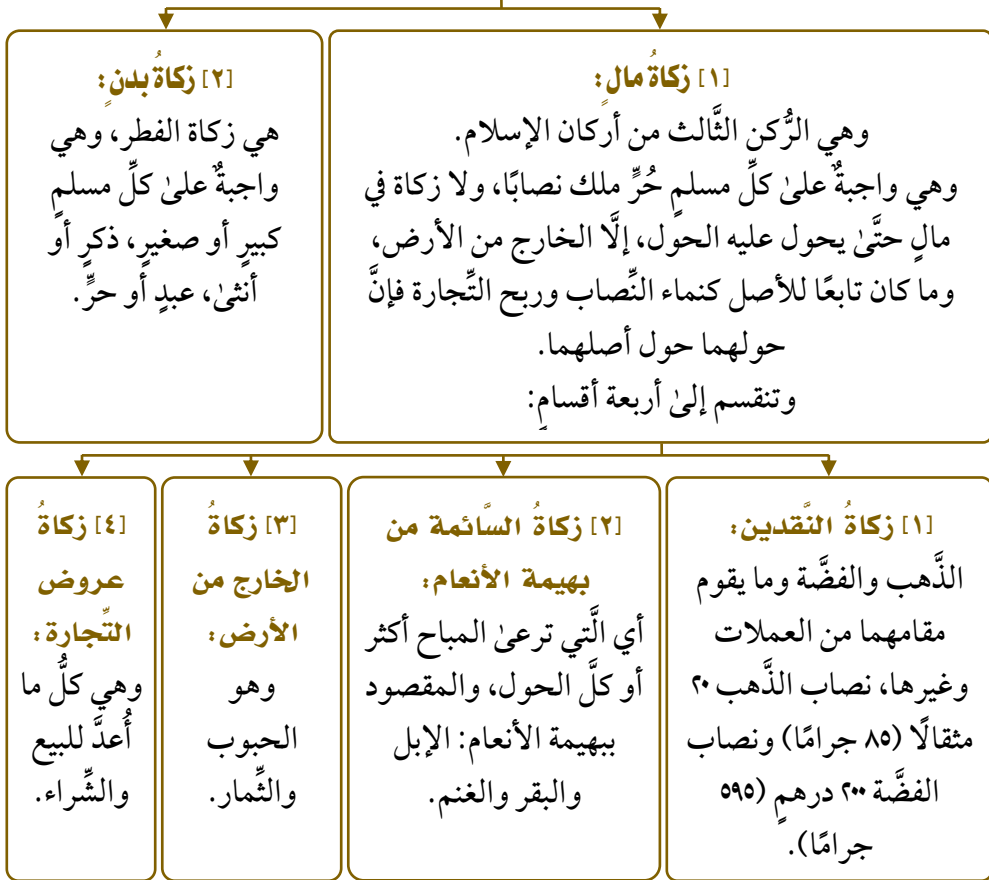 [١] زكاةُ مالٍ:
وهي الرُّكن الثَّالث من أركان الإسلام.
وهي واجبةٌ علىٰ كلِّ مسلمٍ حُرٍّ ملك نصابًا، ولا زكاة في
مالٍ حتَّىٰ يحول عليه الحول، إلَّا الخارج من الأرض،
وما كان تابعًا للأصل كنماء النِّصاب وربح التِّجارة فإنَّ
حولهما حول أصلهما.
وتنقسم إلىٰ أربعة أقسامٍ:
[٢] زكاةُ بدنٍ:
هي زكاة الفطر، وهي
واجبةٌ علىٰ كلِّ مسلمٍ
كبيرٍ أو صغيرٍ، ذكرٍ أو
أنثىٰ، عبدٍ أو حرٍّ.
[١] زكاةُ النَّقدين:
الذَّهب والفضَّة وما يقوم
مقامهما من العملات
وغيرها، نصاب الذَّهب ٢٠
مثقالًا (٨٥ جرامًا) ونصاب
الفضَّة ٢٠٠ درهمٍ (٥٩٥
جرامًا).
[٢] زكاةُ السَّائمة من
بهيمة الأنعام:
أي الَّتي ترعىٰ المباح أكثر
أو كلَّ الحول، والمقصود
ببهيمة الأنعام: الإبل
والبقر والغنم.
[٣] زكاةُ
الخارج من
الأرض:
وهو
الحبوب
والثِّمار.
[٤] زكاةُ
عروض
التِّجارة:
وهي كلُّ ما
أُعدَّ للبيع
والشِّراء.